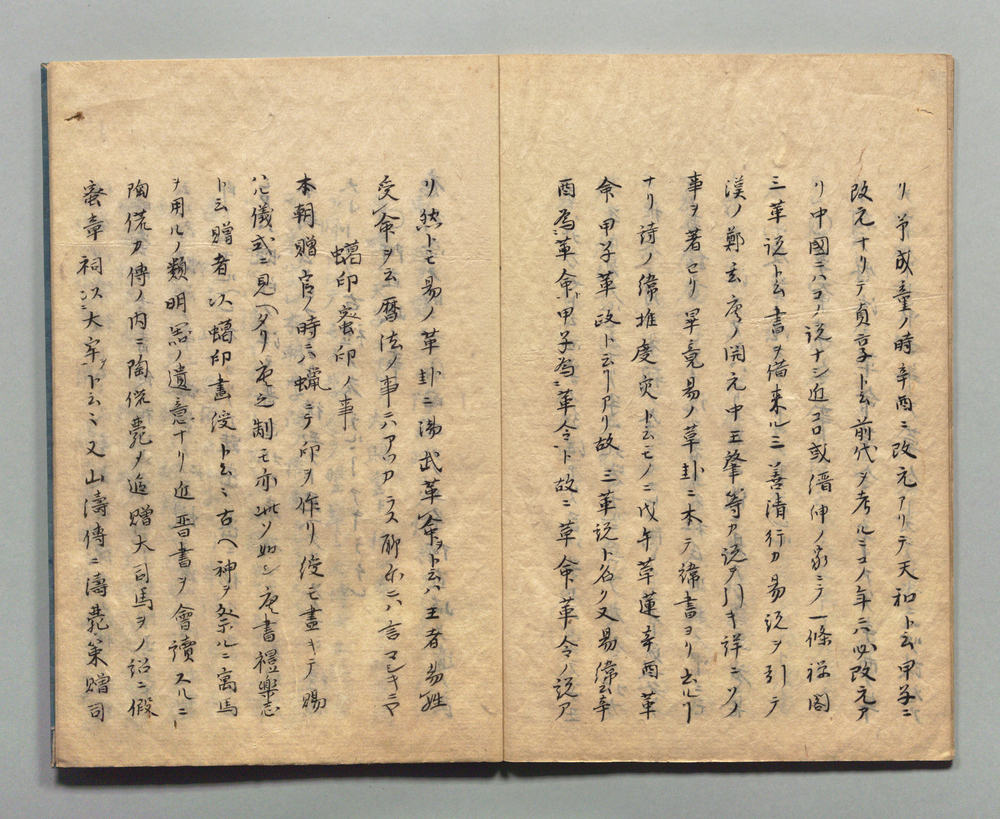 リ予成童ノ時辛酉ニ改元アリテ天和ト云甲子ニ
改元ナリテ貞享ト云前代ヲ考ルニコノ年ニハ必改元ア
リ中國ニハコノ説ナシ近コロ或縉紳ノ家ニテ一條禅閤
三革説ト云書ヲ借来ル三善清行カ易説ヲ引テ
漢ノ鄭玄唐ノ開元中王肇等カ説ヲ引キ詳ニソノ
事ヲ著セリ畢竟易ノ革卦ニ本テ緯書ヨリ出ルヿ
ナリ詩ノ緯推度災ト云モノニ戊午革運辛酉革
命甲子革政ト云ヿアリ故三革説ト名ク又易緯云辛
酉為革命甲子為革令ト故ニ革命革令ノ説ア
リ然トモ易ノ革卦ニ湯武革命ヲト云ハ王者易姓
受命ヲ云暦法ノ事ニハアツカラス耶尓ニハ言マシキニヤ
蝎印蜜印ノ事
本朝贈官ノ時ニハ蠟ニテ印ヲ作リ綬モ畫キテ賜
ハル儀式ニ見ヘタリ唐之制モ亦此ノ如シ唐書禮樂志
ト云贈者以蝎印畫綬ト云ミ古ヘ神ヲ祭ルニ寓馬
ヲ用ルノ類明器ノ遺意ナリ近晋書ヲ會讀スルニ
陶侃カ傳ノ内ニ陶侃薨ノ追贈大司馬ヲノ詔ニ假
蜜章祠以大牢ト云ミ又山濤傳ニ濤薨策贈司